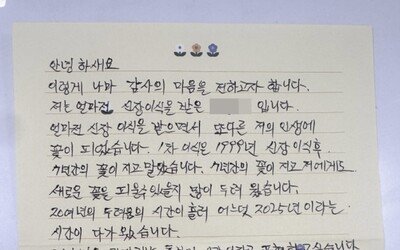 안녕하세요
이렇게 나마 감사의 마음을 전하고자 합니다.
저는 얼마전 신장이식을 받은 입니다.
얼마전 신장 이식을 받으면서 또다른 저의 인생에
꽃이 피었습니다. 1차 이식은 1999년 신장 이식후
7년간의 꽃이 지고 말았습니다. 7년간의 꽃이 지고 저에게도
새로운 꽃을 피울수 있을지 많이 두려 웠습니다.
20여년의 두려움의 시간이 흘러 어느덧 2025년 이라는
시간이 다가 왔습니다.